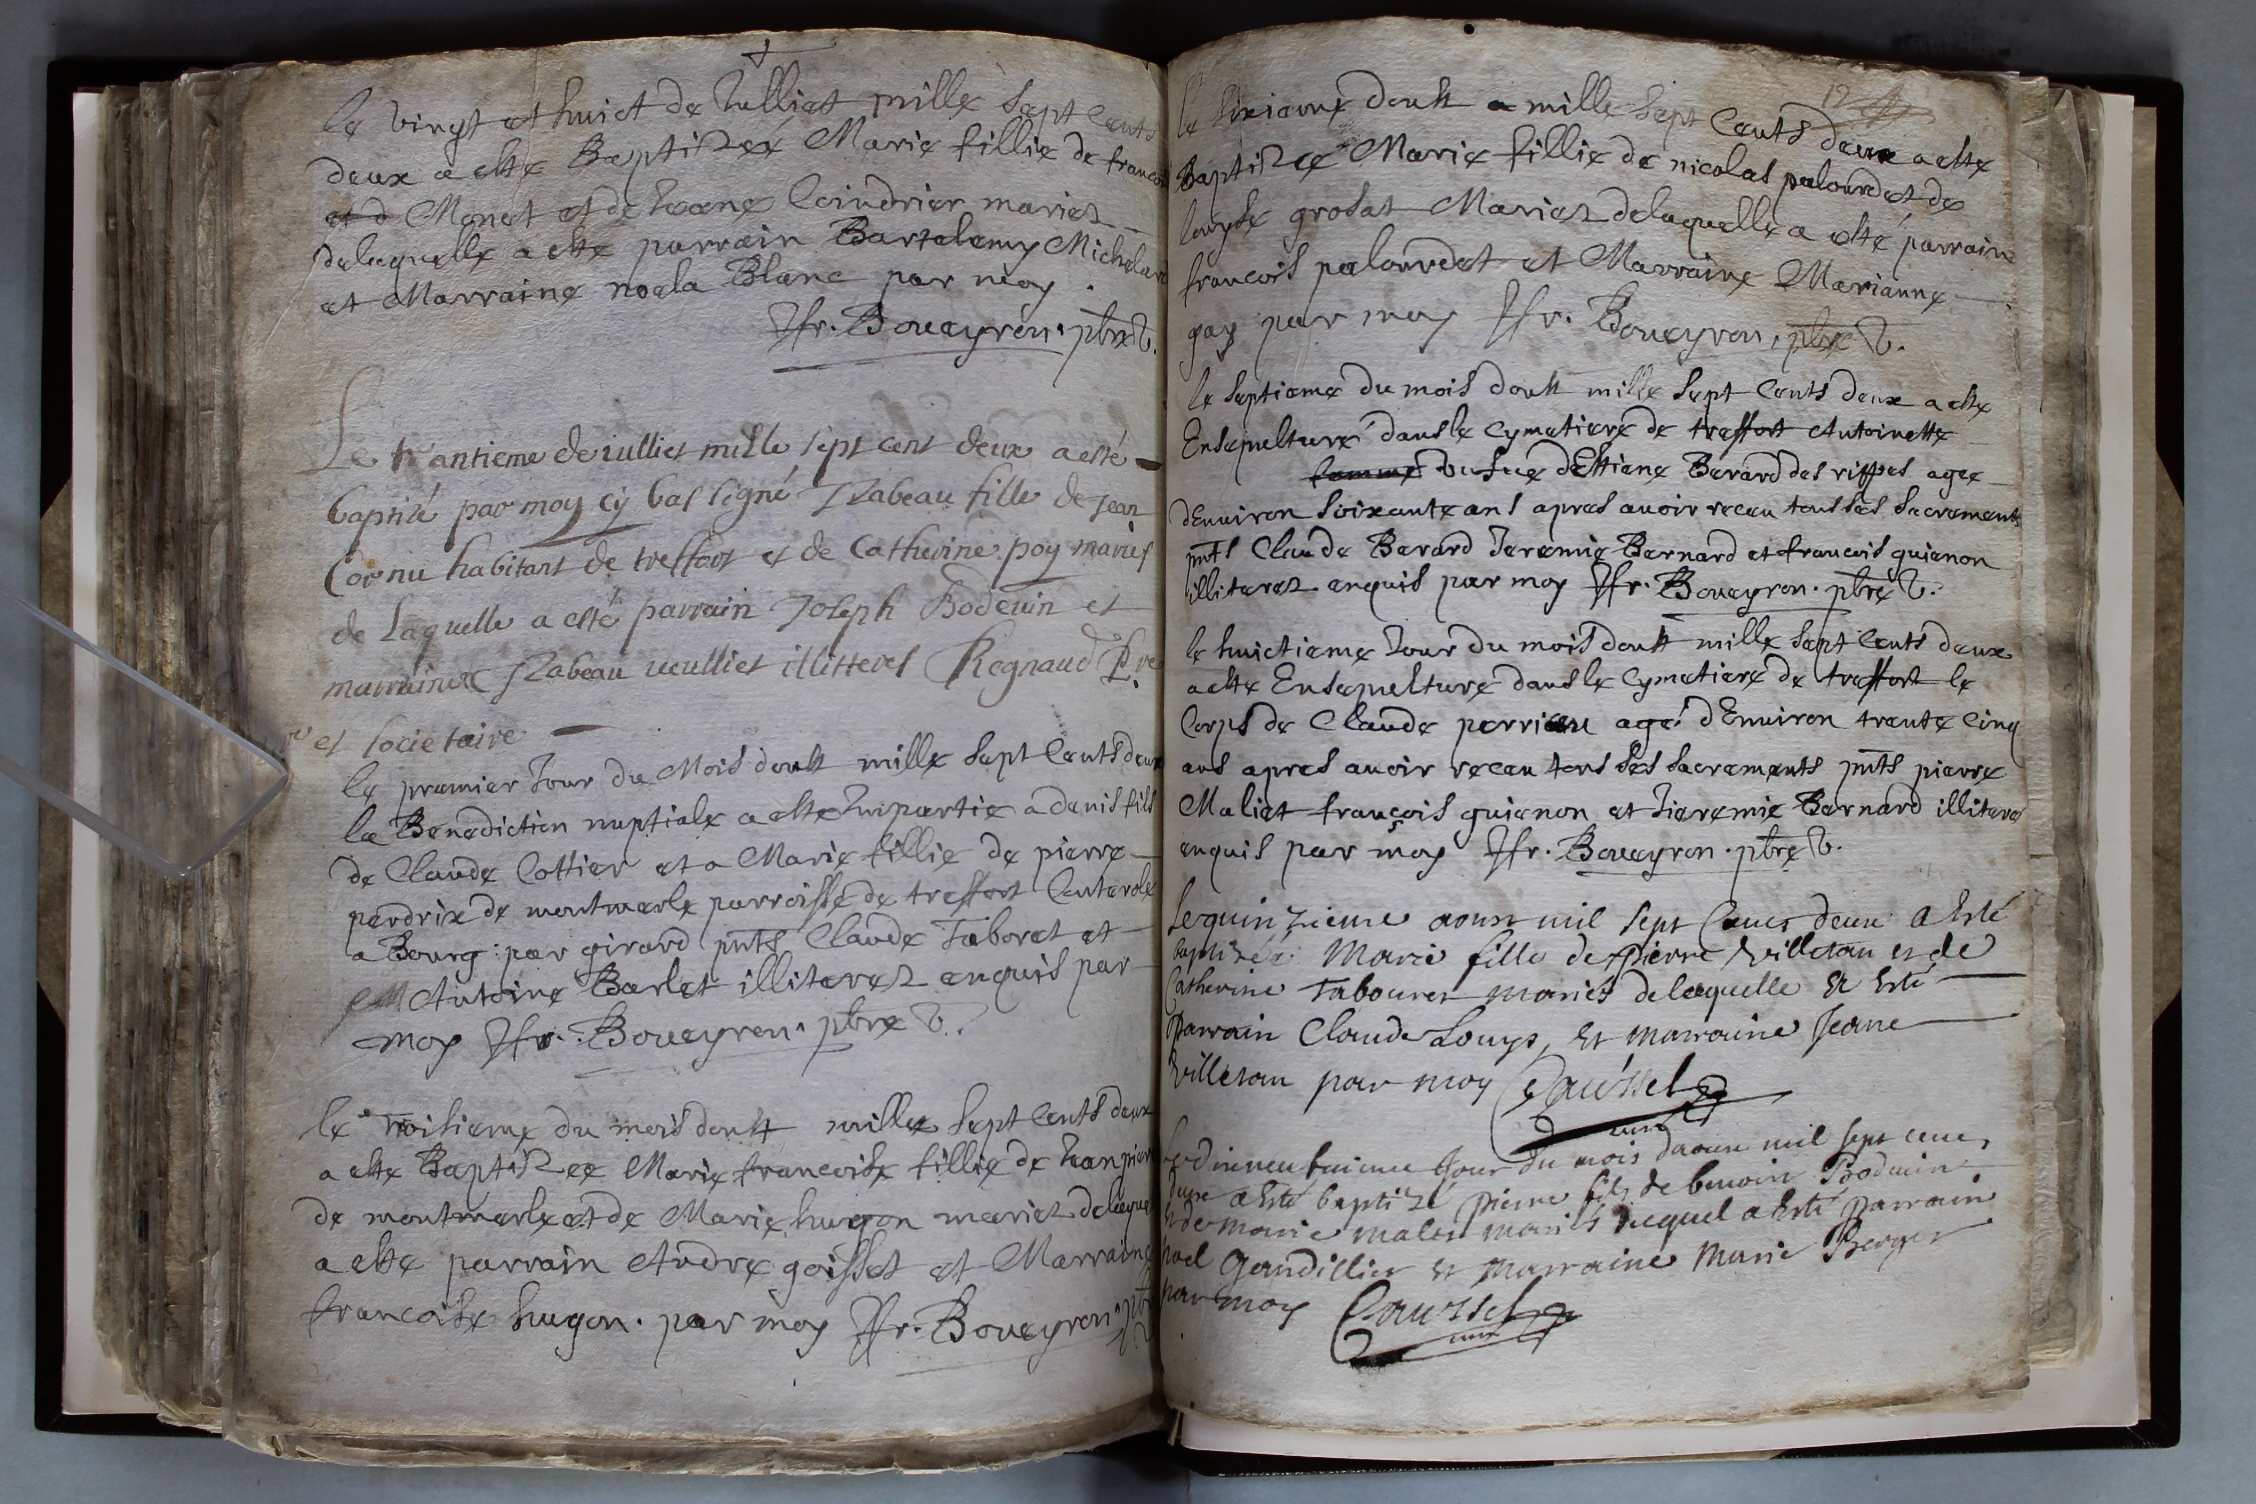 le vingt et huict de Julliet mille sept cents
deux a este Baptizée Marie fillie de francois
et d Monet et de Jeane Cindrier mariez
delaquelle a este parrain Bartelemy Michelard
et Marraine noela Blanc par moy.
Jfr. Boueyron. pbre V.
Le trantieme de iulliet mille sept cent deux a esté
baptisé par moy cy bas signé Izabeau fille de jean
Cornu habitant de treffort et de Catherine poy mariés
de Laquelle a esté parrain Joseph Bodevin et
marrainne Izabeau veulliet illitteres Regnaud Pre
et societaire
le premier Jour du Mois doust mille sept Cents deux
la Benediction nuptiale a este Impartie a denis fils
de Claude Cottier et a Marie fillie de pierre
perdrix de montmerle parroisse de treffort Conterole
a Bourg: par girard pnts Claude Taboret et
Antoine Barlet illiterez enquis par
moy Jfr. Boueyron. pbre V.
le troisieme du mois doust mille sept Cents deux
a este Baptizee Marie francoise fillie de Jeanpierre
de montmerle et de Marie hugon mariez delaquel
a este parrain Andre goisset et Marraine
francoise hugon. par moy Jfr. Boueyron. pbre
V.
le sixieme doust a mille sept Cents deux a este
Baptizee Marie fillie de nicolas palourdet de
louyse grosat Mariez delaquelle a esté parrain
francois palourdet et Marraine Marianne
gay par moy Jfr. Boueyron, pbre V.
le septieme du mois doust mille sept Cents deux a este
Ensepulturé dans le Cymetiere de treffort Antoinette
femme vefue dEstiene Berard des rippes agee
dEnviron soixante ans apres auoir receu tous ses sacrements
pnts Claude Berard Jeremie Bernard et francois guienon
illiterez enquis par moy Jfr. Boueyron. pbre V.
le huictieme Jour du mois doust mille sept Cents deux
a este Ensepulturé dans le Cymetiere de treffort le
Corps de Claude perrieu agé dEnviron trante Cinq
ans apres auoir receu tous ses sacrements pnts pierre
Maliet françois guienon et Jieremie Bernard illitere
enquis par moy Jfr. Boueyron. pbre V.
Le quinzieme aoust mil sept Cents deux a Esté
baptizée Marie fille de Pierre Villetan et de
Catherine Tabouret mariés delaquelle a Esté
Parrain Claude Louys, et marraine Jeane
Villetan par moy Caussel
Le dixneufuieme Jour du mois daoust mil sept cent
deux a Esté baptizé Pierre fils de benoin Bodevin
et de marie malet mariés duquel a Esté Parrain
noel Gandillier et Marraine Marie Berger
par moy Caussel